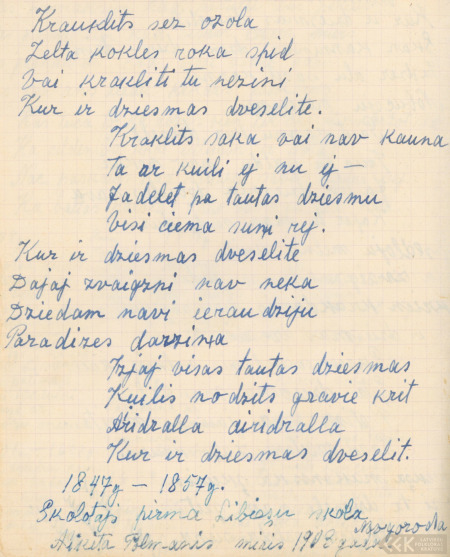 Krauklits sez ozola
Zelta kokles roka spid
Vai krakliti tu nezini
Kur ir dziesmas dveselite.
Kraklits saka vai nav kauna
Ta ar kuili ej nu ej –
Jadelet pa tautas dziesmu
Visi ciema suņi rej.
Kur ir dziesmas dveselite
Dajaj zvaigzni nav neka
Dziedam navi ieraudziju
Paradizes darziņa
Izjaj visas tautas dziesmas
Kuilis nodzits gravie krit
Aridralla airidralla
Kur ir dziesmas dveselit.
1847g – 1857g.
Skolotajs pirma Libiešu skola
Nikita miris 1902 gada